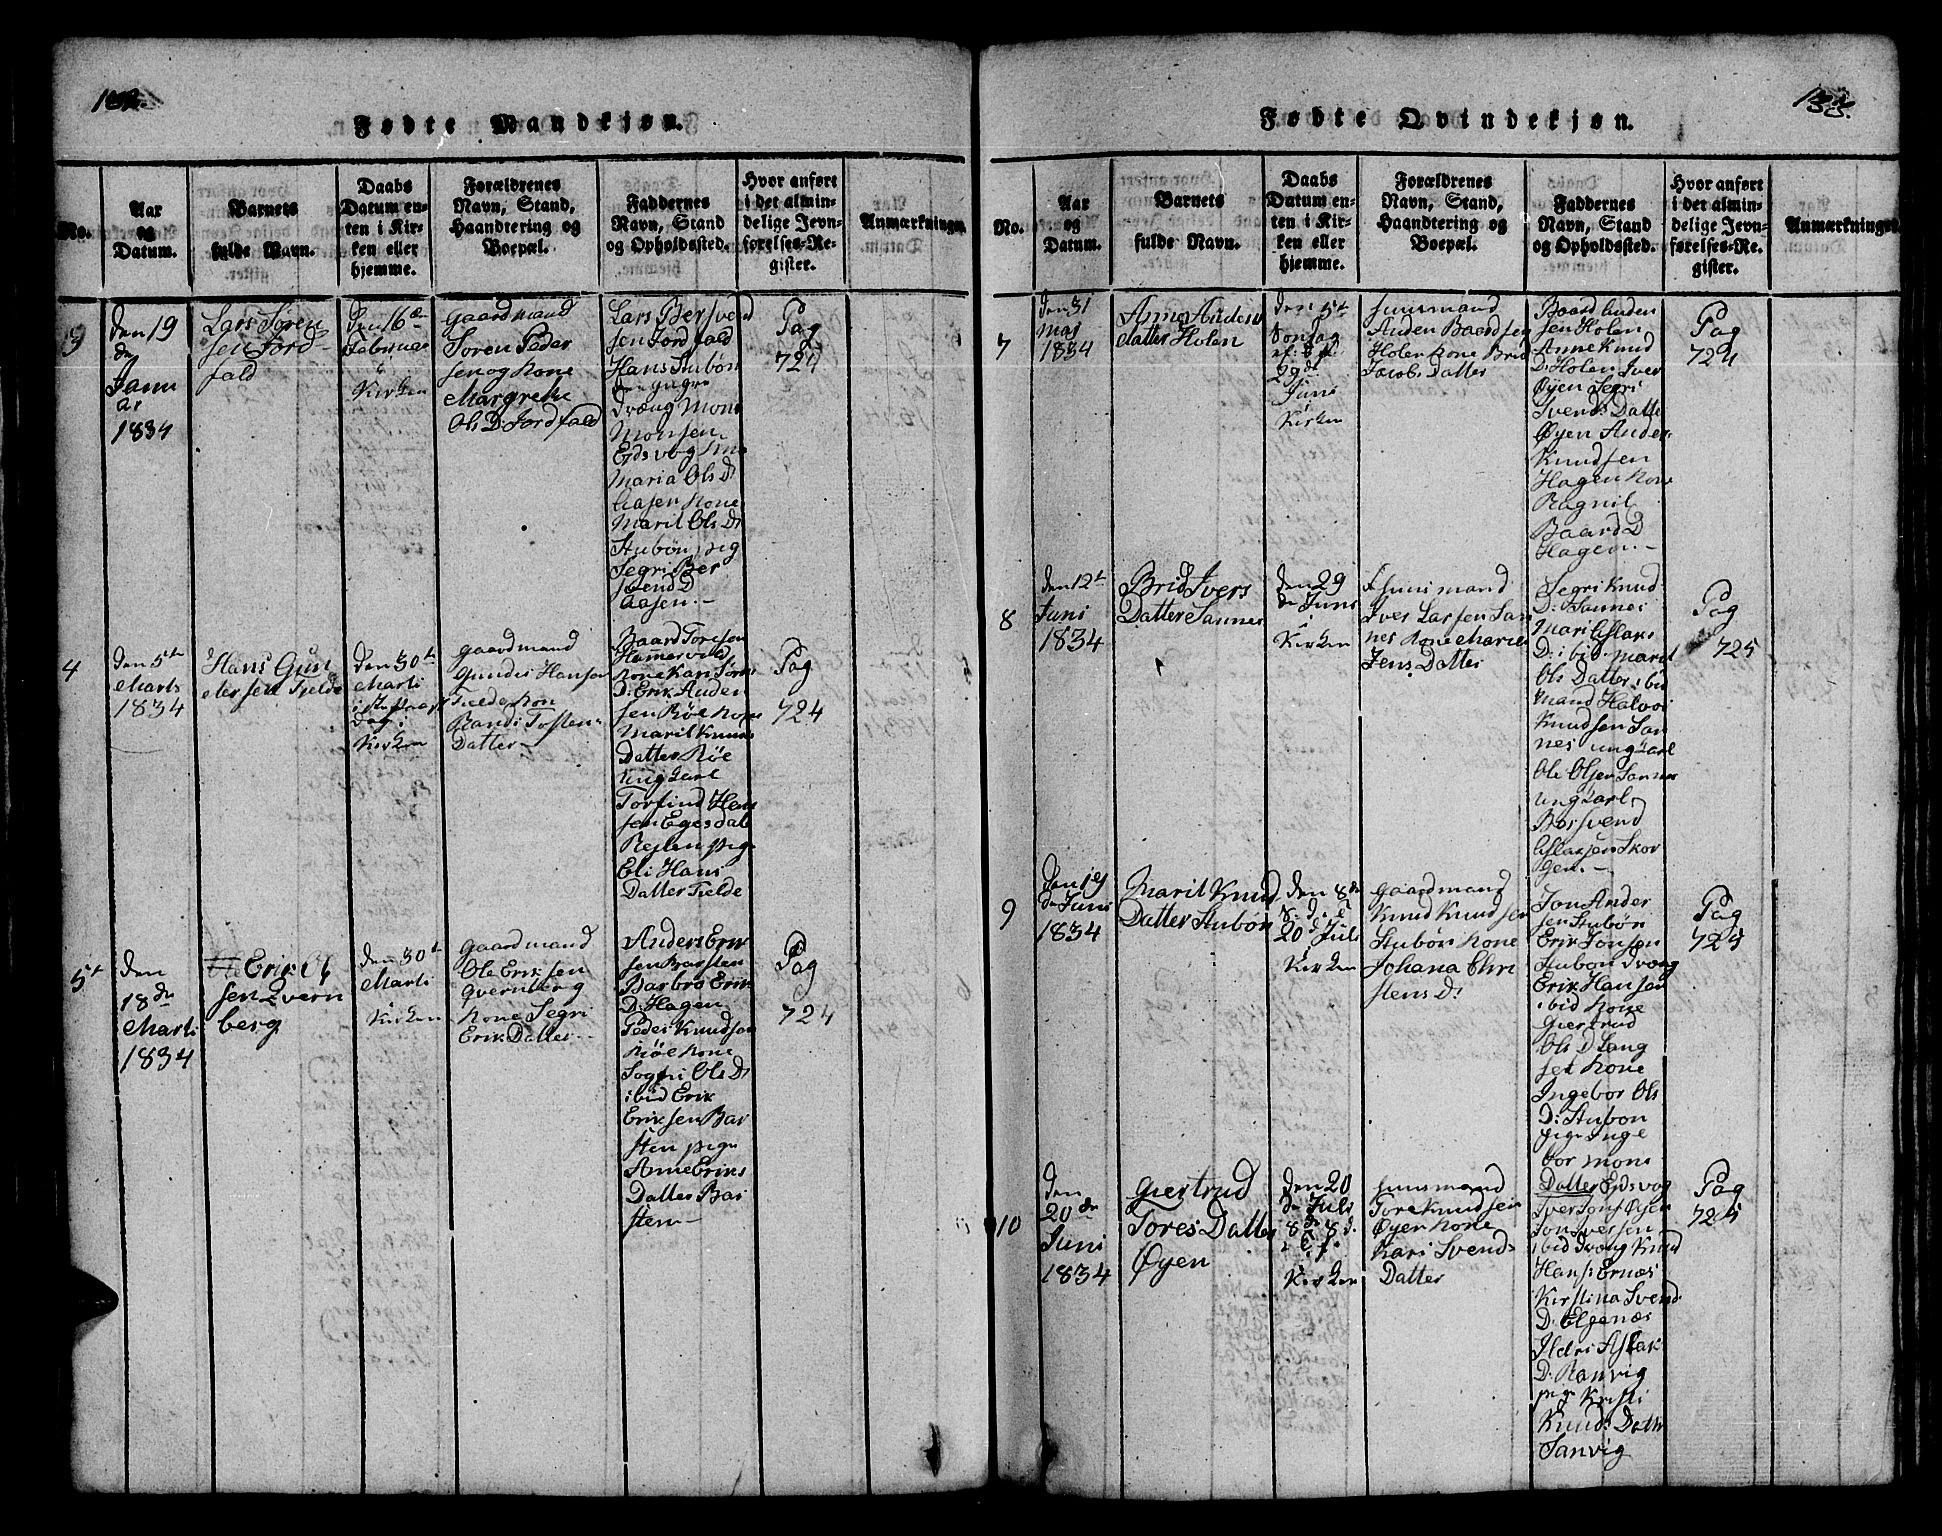 Fødte Mandkjøn.
No.
Aar
og
Datum.
Barnets
fulde Navn.
Daabs
Datum en-
ten i Kir-
ken eller
hjemme.
Forældrenes
Navn, Stand,
Haandtering og
Boepæl.
Faddernes
Navn, Stand
og Opholdssted.
Hvor anført
i det almin-
delige Jevn-
førelses-Re-
gister.
Anmærkninger.
3
den 19
de
Janu
ar
1834
Lars Søren
sen Jord
fald
den 16de
Februar
i
Kirken
Gaardmand
Søren Peder
sen og Kone
Margrethe
Ols D: Jordfald
Lars Bersvend
sen Jordfald
Hans Stubøn
den yngre
Dræng Mons
Monsen
Ejdsvog
Maria Ols D
Aasen Kone
Marit Ols D
Stubøn pig
Segri Ber
svend D
Aasen.-
Pag
724
4
den 5te
Marts
1834
Hans Gun
dersen Tjelde
den 30te
Marti
Dag i
Kirken
Gaardmand
Gunder Hansen
Tjelde Kone
Randi Tosten
Datter-
Baard Toresen
Hammervold
Kone Kari Sørens
D: Erik Anden
sen Röe Kone
Marit Knuds
Datter Röe
ung Karl
Torfind Hans
sen Egesdal
Rejten pige
Eli Hans
Datter Tjelde
Pag
724
5te
den
18de
Marti
1834
Erik Ol
sen Qvern
berg
den 30te
Marti
Kirken
Gaardmand
Ole Eriksen
Qvernberg
Kone Segri
Erik Datter-
Anders Erik
sen Barsten
Barbro Erik
D: Hagen
Peder Knudsen
Röe Kone
Ols D
ibid Erik
Eriksen Bar
sten pige
Anne Eriks
Datter Bar
sten-
Pag
724
133.
Fødte Qvindekjøn.
No.
Aar
og
Datum.
Barnets
fulde Navn.
Daabs
Datum en-
ten i Kir-
ken eller
hjemme.
Forældrenes
Navn, Stand,
Haandtering og
Boepæl.
Faddernes
Navn, Stand
og Opholdssted.
Hvor anført
i det almin-
delige Jevn-
førelses-Re-
gister.
Anmærkninger.
7
den 31
maj
1834
Anne Anders
datter Holen
den 5te
Søndag
29de
Juni
i
Kirken
Huusmand
Anden Baardsen
Holen Kone Brid
Jacobs Datter
Baard Anden
sen Holen
Anne Knud
D: Holen Iver
Øyen Segri
Svends Datter
Øyen Anders
Knudsen
Hagen Kone
Ragnil
Baard D
Hagen.-
Pag
724
8
den 12te
Juni
1834
Brid Ivers
Datter Sannes
den 29
de Juni
i
Kirken
Huusmand
Iver Larsen San
nes Kone Marie
Jens Datter
Segri Knud
D: Sannes
Mari Aslaks
D: ibid. Maret
Ols Datter ibid
mand Halvor
Knudsen San
nes ung Karl
Ole Olsen Sannes
ung Karl
Bersvend
Aslaksen Skor
gen.-
Pag
725
9
den 19
de Juni
1834
Marit Knud
Datter Stubøn
den 8de
20de Juli
Kirken
Gaardmand
Knud Knudsen
Stubøn Kone
Johana Chri
stens D:
Jon Ander
sen Stubøn
Erik Jonsen
Stubøn Dræng
Erik Hansen
ibid Kone
Giertrud
Ols D Lang
set Kone
Ingebor Ols
D: Stubøn
pige Inge
bor Mons
Datter Ejdsvog
Pag
725
10
den
20de
Juni
1834
Giertrud
Tores Datter
Øyen
den 20
de Juli
Kirken
Huusmand
Tore Knudsen
Øyen Kone
Kari Svends
Datter
Iver Jons Øyen
Jon Iversen
ibid Dræng Knud
Hans Ernæs
Kirstina Svend
D: Elgenæs
Ildri Aslak
D. Ranvig
pige Kristi
Knuds Datter
Sanvig
Pag
725